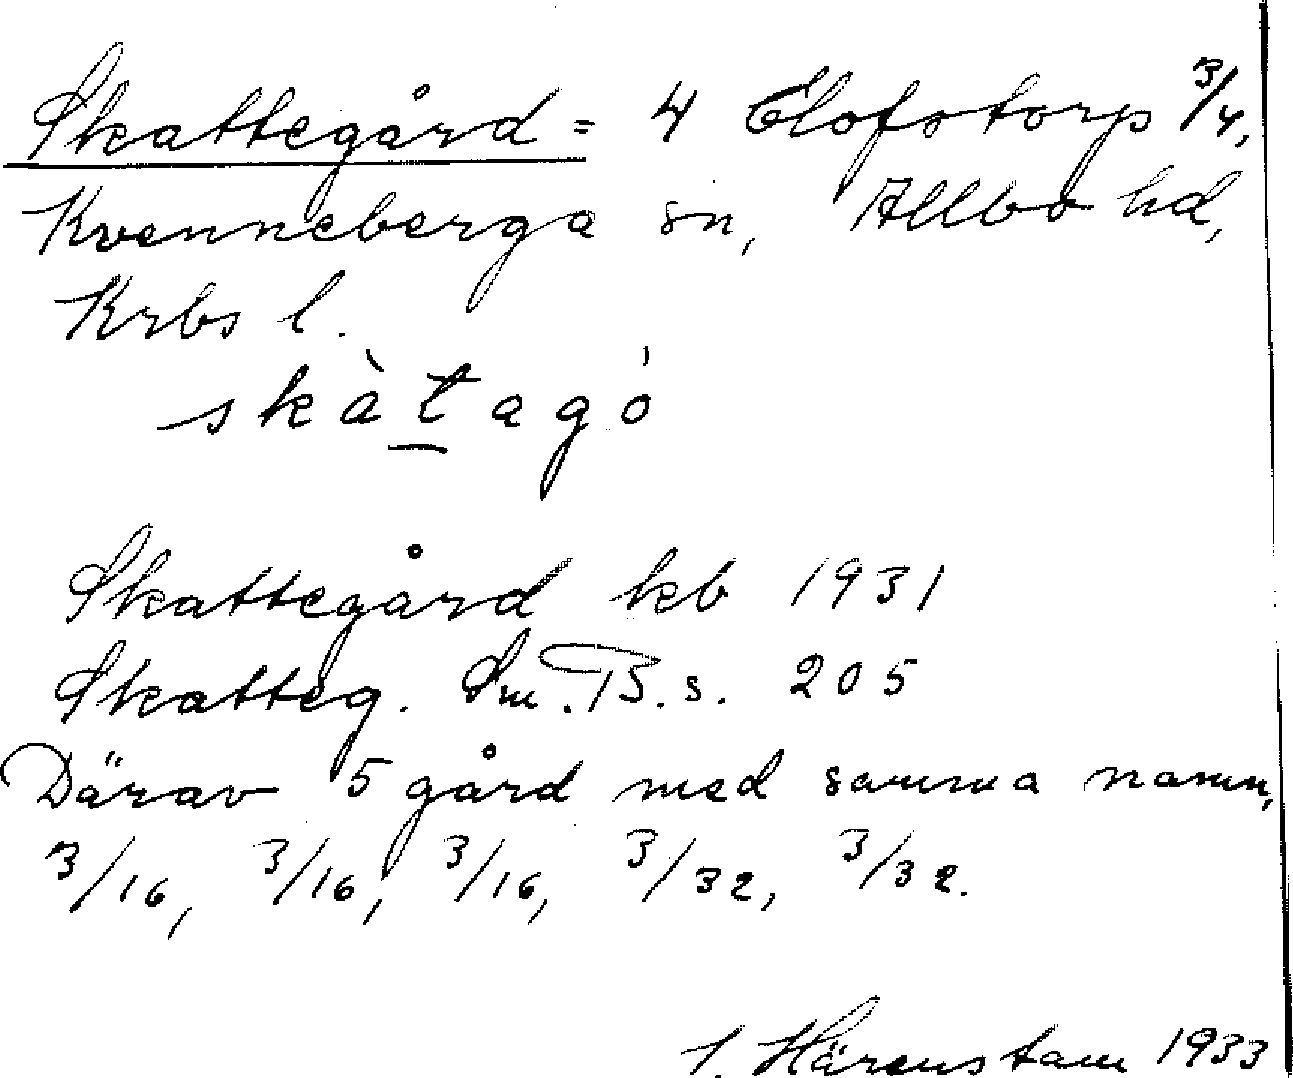 Skattegård = 4 Elofstorp 3/4,
Kvenneberga sn, Allbo hd,
Krbs l.
skàtagó
Skattegård kb 1931
Skatteg. Sm. B. s. 205
Därav 5 gård med samma namn,
3/16, 3/16, 3/16, 3/32, 3/32.
Härenstam 1933